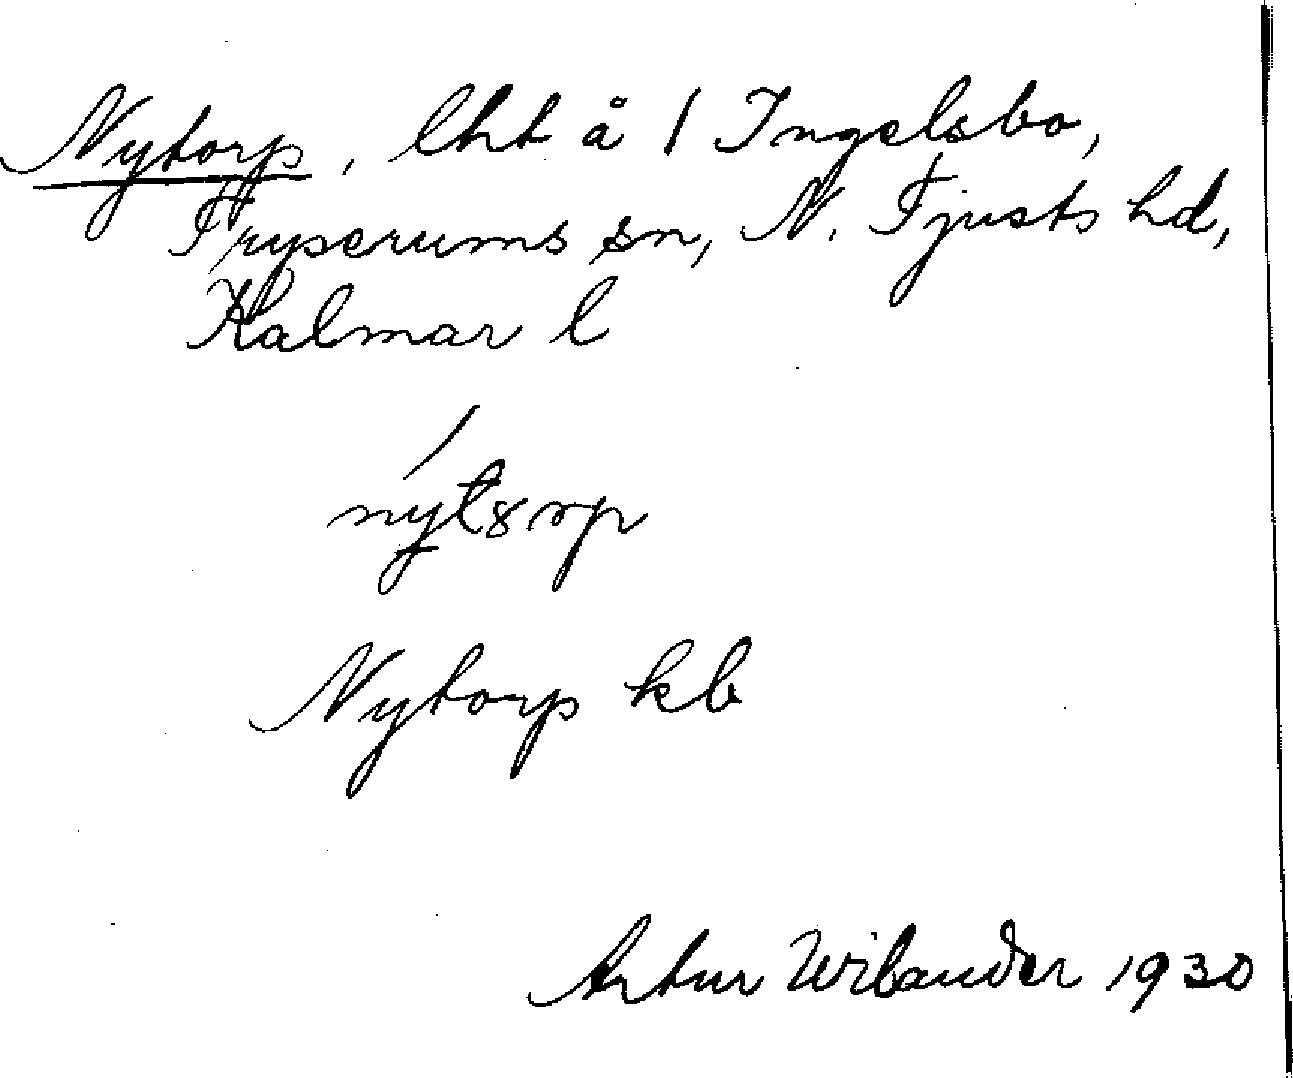 Nytorp, lht å 1 Ingelsbo,
Tryserums sn, N. Tjusts hd,
Kalmar l
Nytorp kb
Artur Wilander 1930